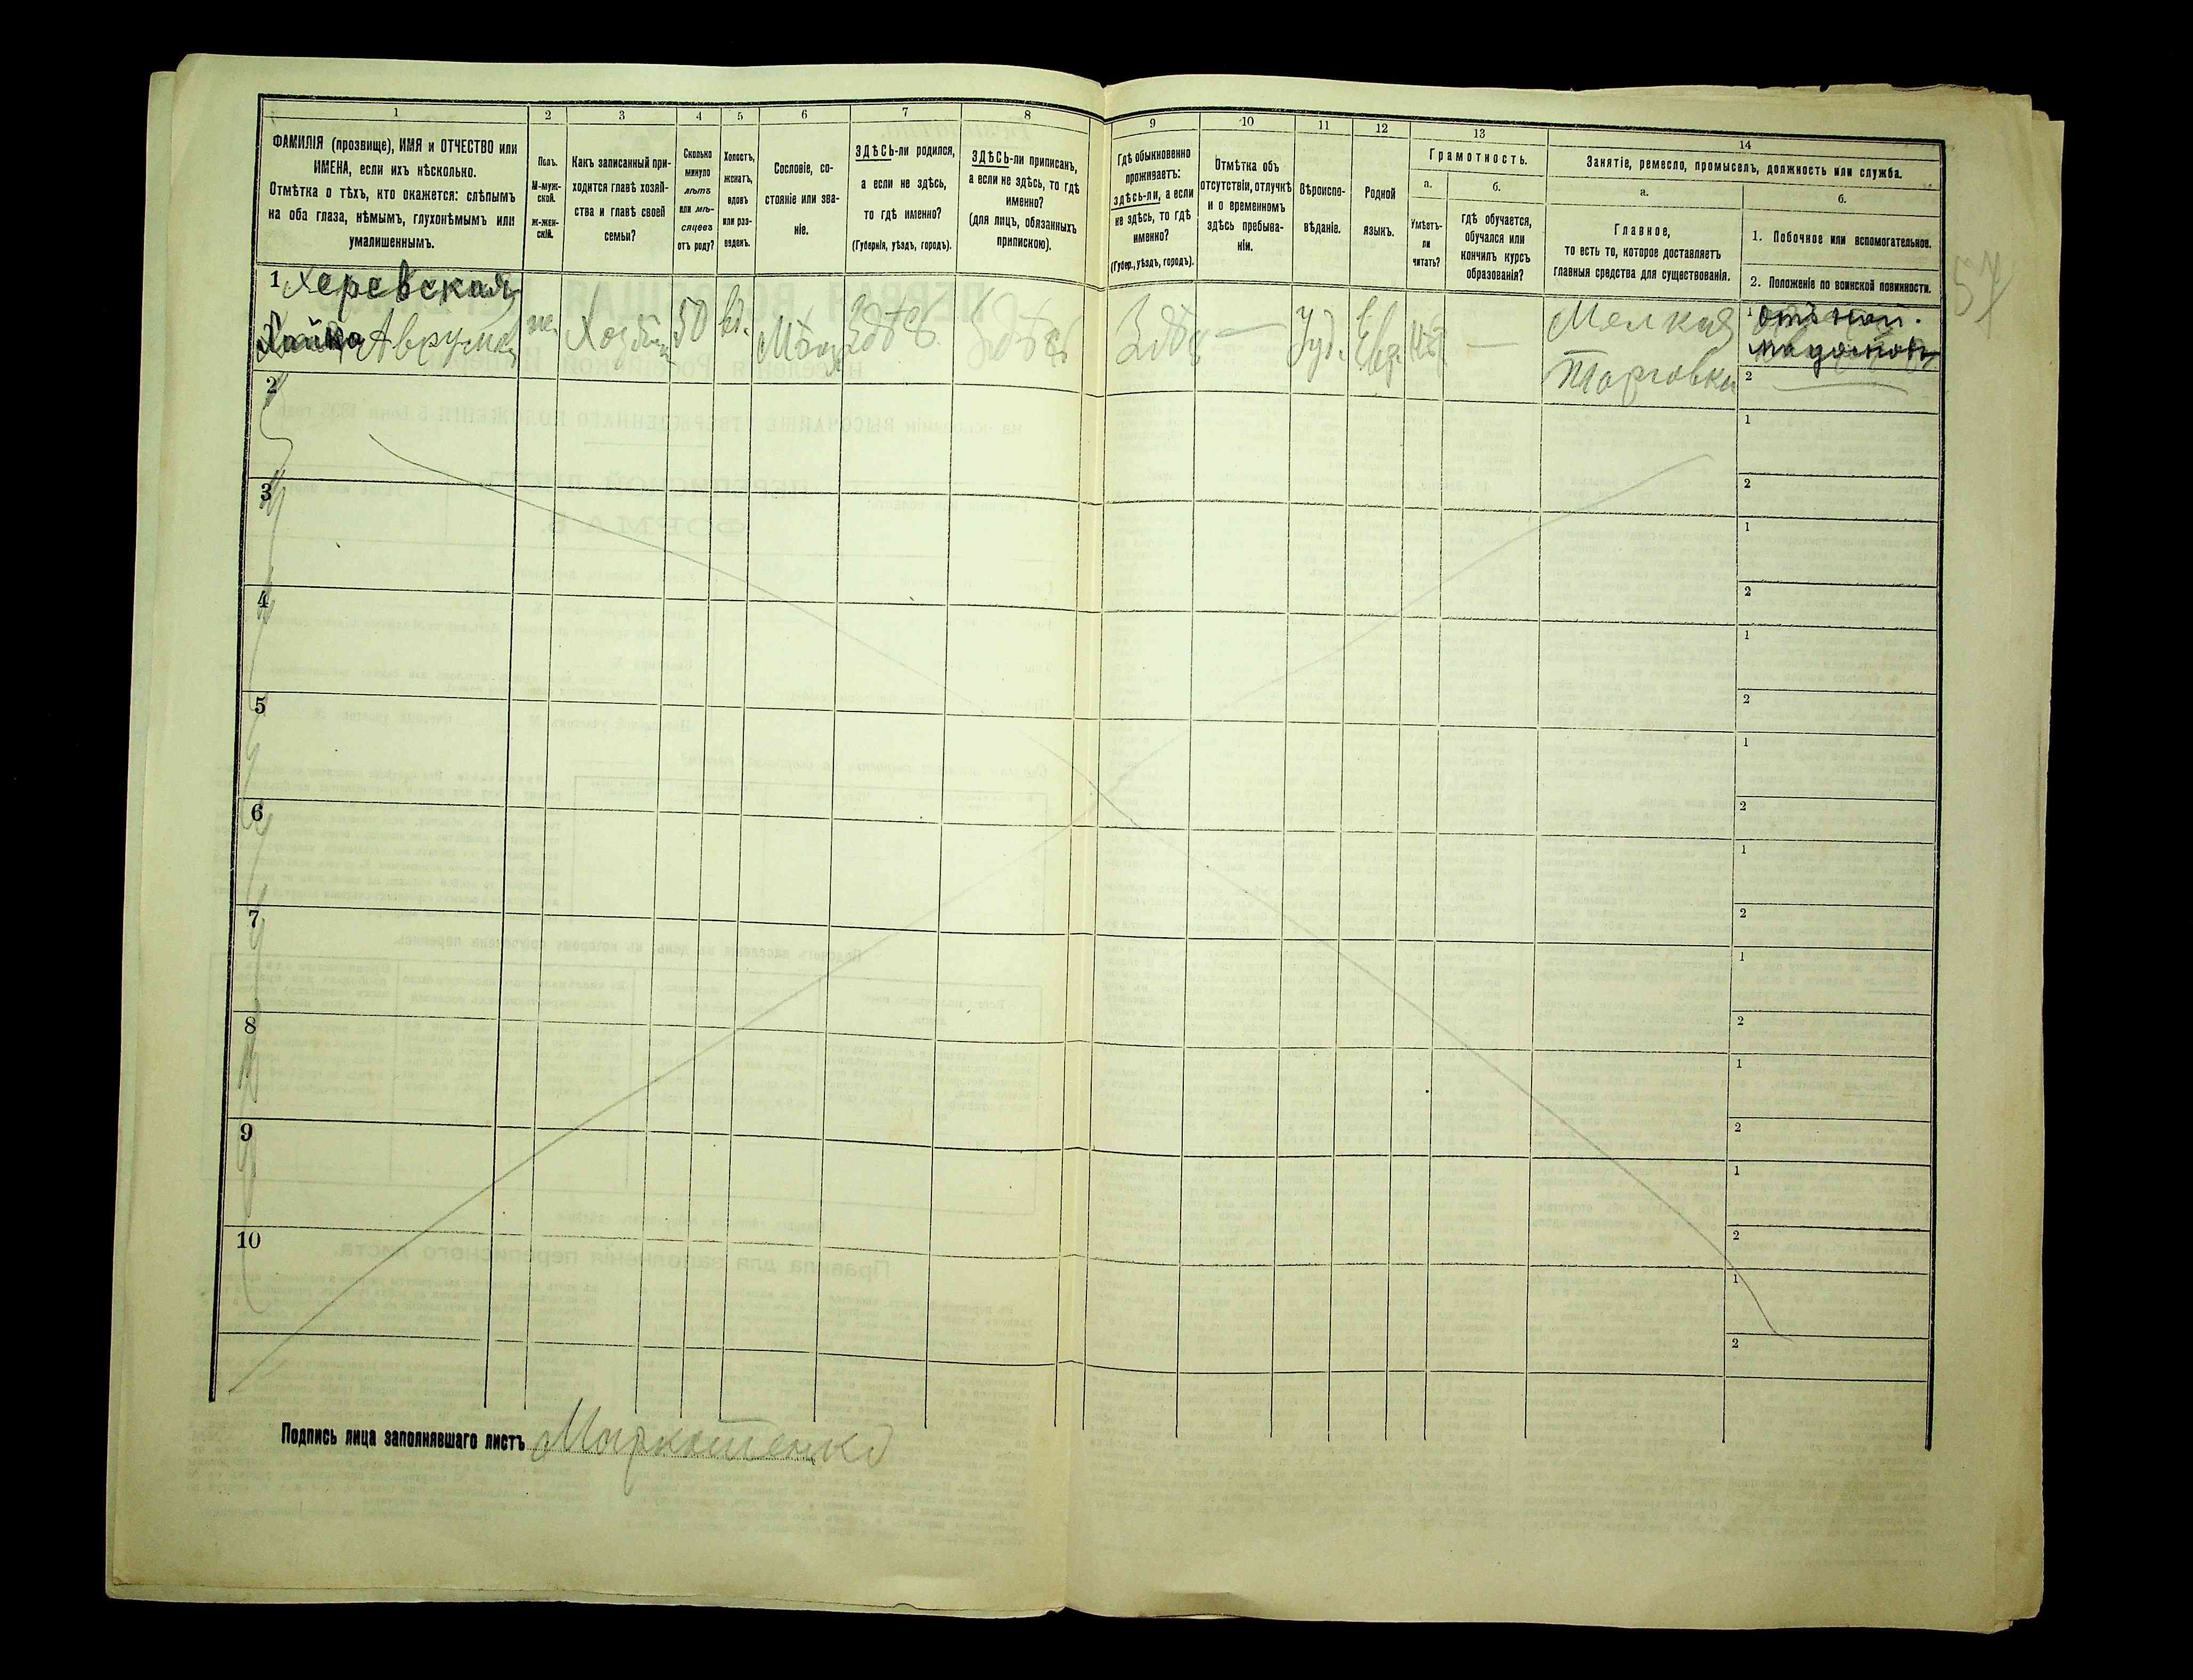 1
ФАМИЛІЯ (прозвище), ИМЯ и ОТЧЕСТВО или
ИМЕНА, если ихъ нѣсколько.
Отмѣтка о тѣхъ, кто окажется: слѣпымъ
на оба глаза, нѣмымъ, глухонѣмымъ или
умалишеннымъ.
2
Полъ.
М-муж-
ской.
Ж-жен-
скій.
3
Какъ записанный при-
ходится главѣ хозяй-
ства и главѣ своей
семьи?
4
Сколько
минуло
лѣтъ
или мѣ-
сяцевъ
отъ роду?
5
Холостъ,
женатъ,
вдовъ
или раз-
веденъ.
6
Сословіе, со-
стояніе или зва-
ніе.
7
ЗДѢСЬ-ли родился,
а если не здѣсь,
то гдѣ именно?
(Губернія, уѣздъ, городъ).
8
ЗДѢСЬ-ли приписанъ,
а если не здѣсь, то гдѣ
именно?
(для лицъ, обязанныхъ
припискою).
9
Гдѣ обыкновенно
проживаетъ:
здѣсь-ли, а если
не здѣсь, то гдѣ
именно?
(Губер., уѣздъ, городъ).
10
Отмѣтка объ
отсутствіи, отлучкѣ
и о временномъ
здѣсь пребыва-
ніи.
11
Вѣроиспо-
вѣданіе.
12
Родной
языкъ.
13
Грамотность.
а.
Умѣетъ-
ли
читать?
б.
гдѣ обучается,
обучался или
кончилъ курсъ
образованія?
14
Занятіе, ремесло, промыселъ, должность или служба.
а.
Главное,
то есть то, которое доставляетъ
главныя средства для существованія.
б.
1. Побочное или вспомогательное.
2. Положеніе по воинской повинности.
57
1 Херевская
Хайка
50
вд.
Здѣсь
Здѣсь
Здѣсь
—
Іуд.
Евр.
—
Мелкая
торговка
1
2
2
1
2
3
1
2
4
1
2
5
1
2
6
1
2
7
1
2
8
1
2
9
1
2
10
1
2
Подпись лица заполнявшаго листъ